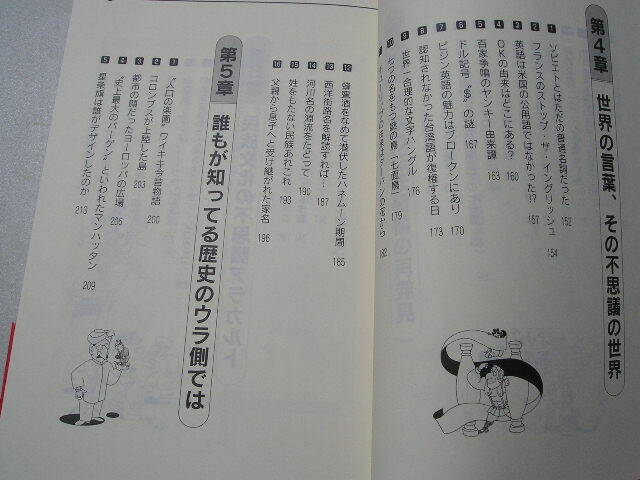 第4章 世界の言葉、その不思議の世界
1 ソビエトとはただの普通名詞だった 152
2 フランスのストップ・ザ・イングリッシュ 154
3 英語は米国の公用語ではなかった!? 157
4 OKの由来はどこにある? 160
5 百家争鳴のヤンキー由来譚 163
6 ドル記号“$”の謎 167
7 ピジン英語の魅力はブロークンにあり 170
8 認知されなかった台湾語が復権する日 173
9 世界一合理的な文字ハングル 176
10 七つの名をもつ謎の島「七面鳥」 179
182
12 蜂蜜酒をなめて潜伏したハネムーン期間 185
13 西洋街路名を解読すれば… 187
14 河川名の源流をたどって 190
15 姓をもたない民族あれこれ 193
16 父親から息子へと受け継がれた家名 196
第5章 誰もが知ってる歴史のウラ側では
1 “人口の楽園”ワイキキ今昔物語 200
2 コロンブスが上陸した島 203
3 都市の顔だったヨーロッパの広場 206
4 “史上最大のバーゲン”といわれたマンハッタン 209
5 星条旗は誰がデザインしたのか 213